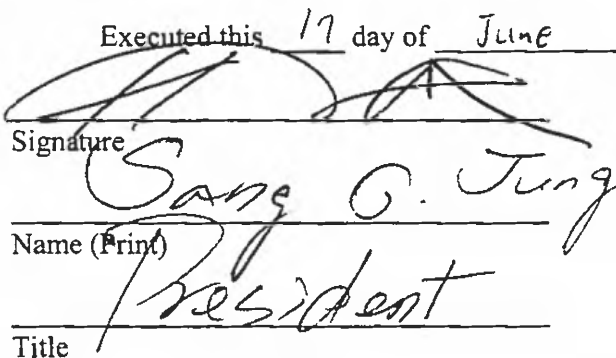 Executed this 17 day of June
Signature
Sang G. Jung
Name (Print)
President
Title